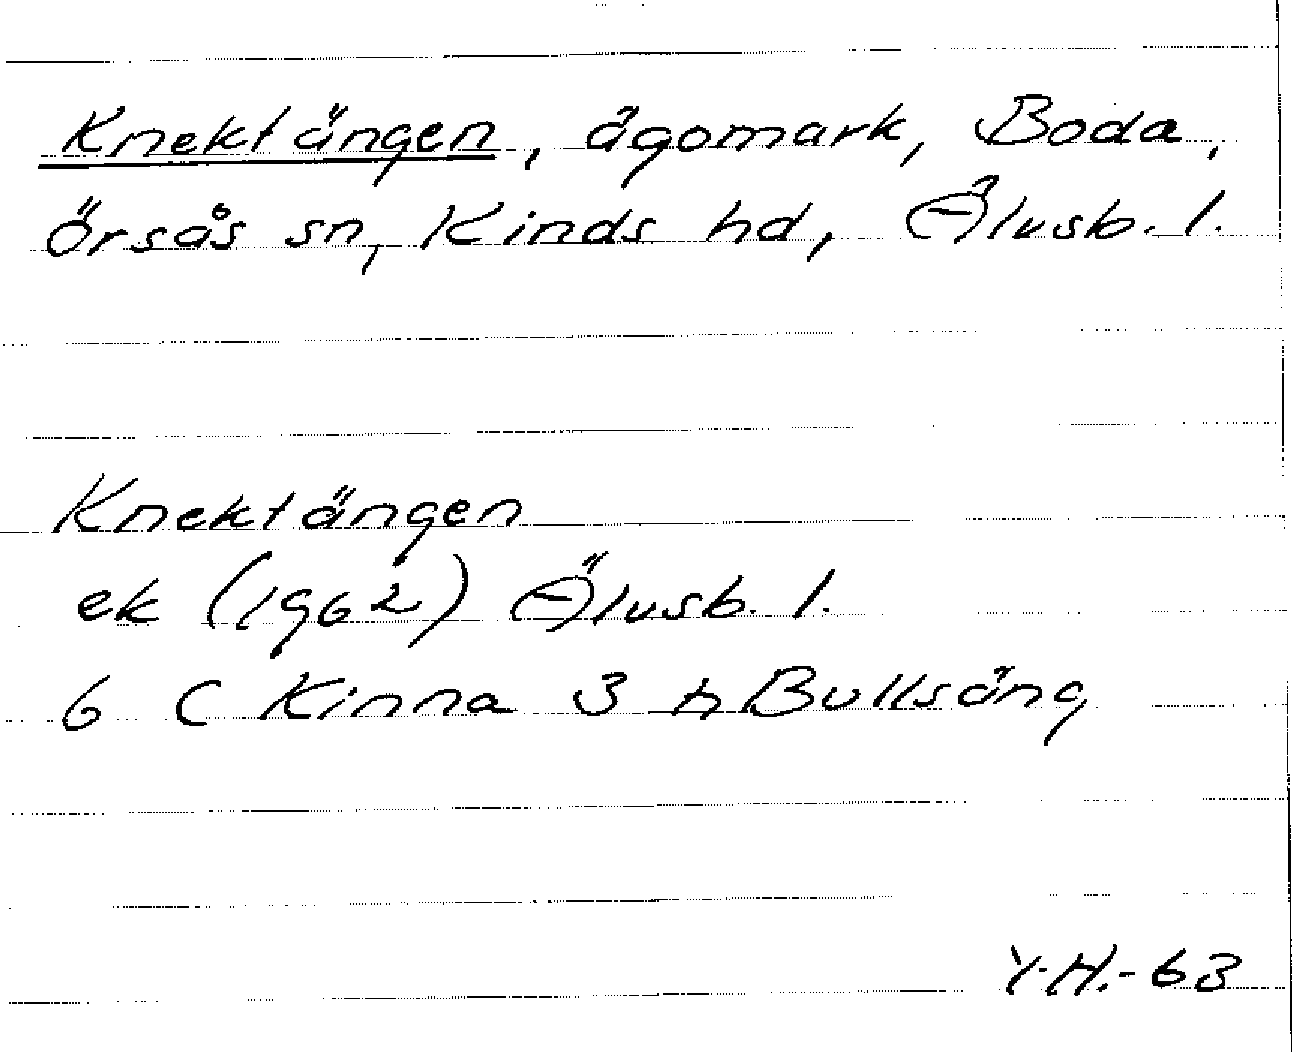 Knektängen, ägomark, Boda,
örsås sn, Kinds hd, Älvsb. l.
Knektängen
ek (1962) Älvsb. l.
6 C Kinna 3 h Bullsäng
Y.H.-63